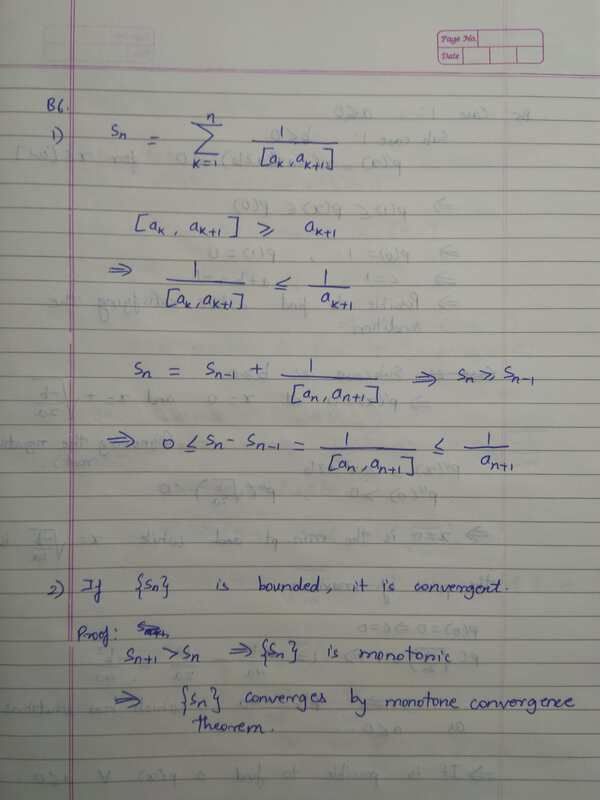 Page No.
Date
B6.
1) Sn = n∑k=1 1/[ak, ak+1]
[ak, ak+1] ≥ ak+1
⇒ 1/[ak, ak+1] ≤ 1/ak+1
Sn = Sn-1 + 1/[an, an+1] ⇒ Sn ≥ Sn-1
⇒ 0 ≤ Sn - Sn-1 = 1/[an, an+1] ≤ 1/an+1
2) If {Sn} is bounded, it is convergent.
Proof:
Sn+1 > Sn ⇒ {Sn} is monotonic
⇒ {Sn} converges by monotone convergence
theorem.